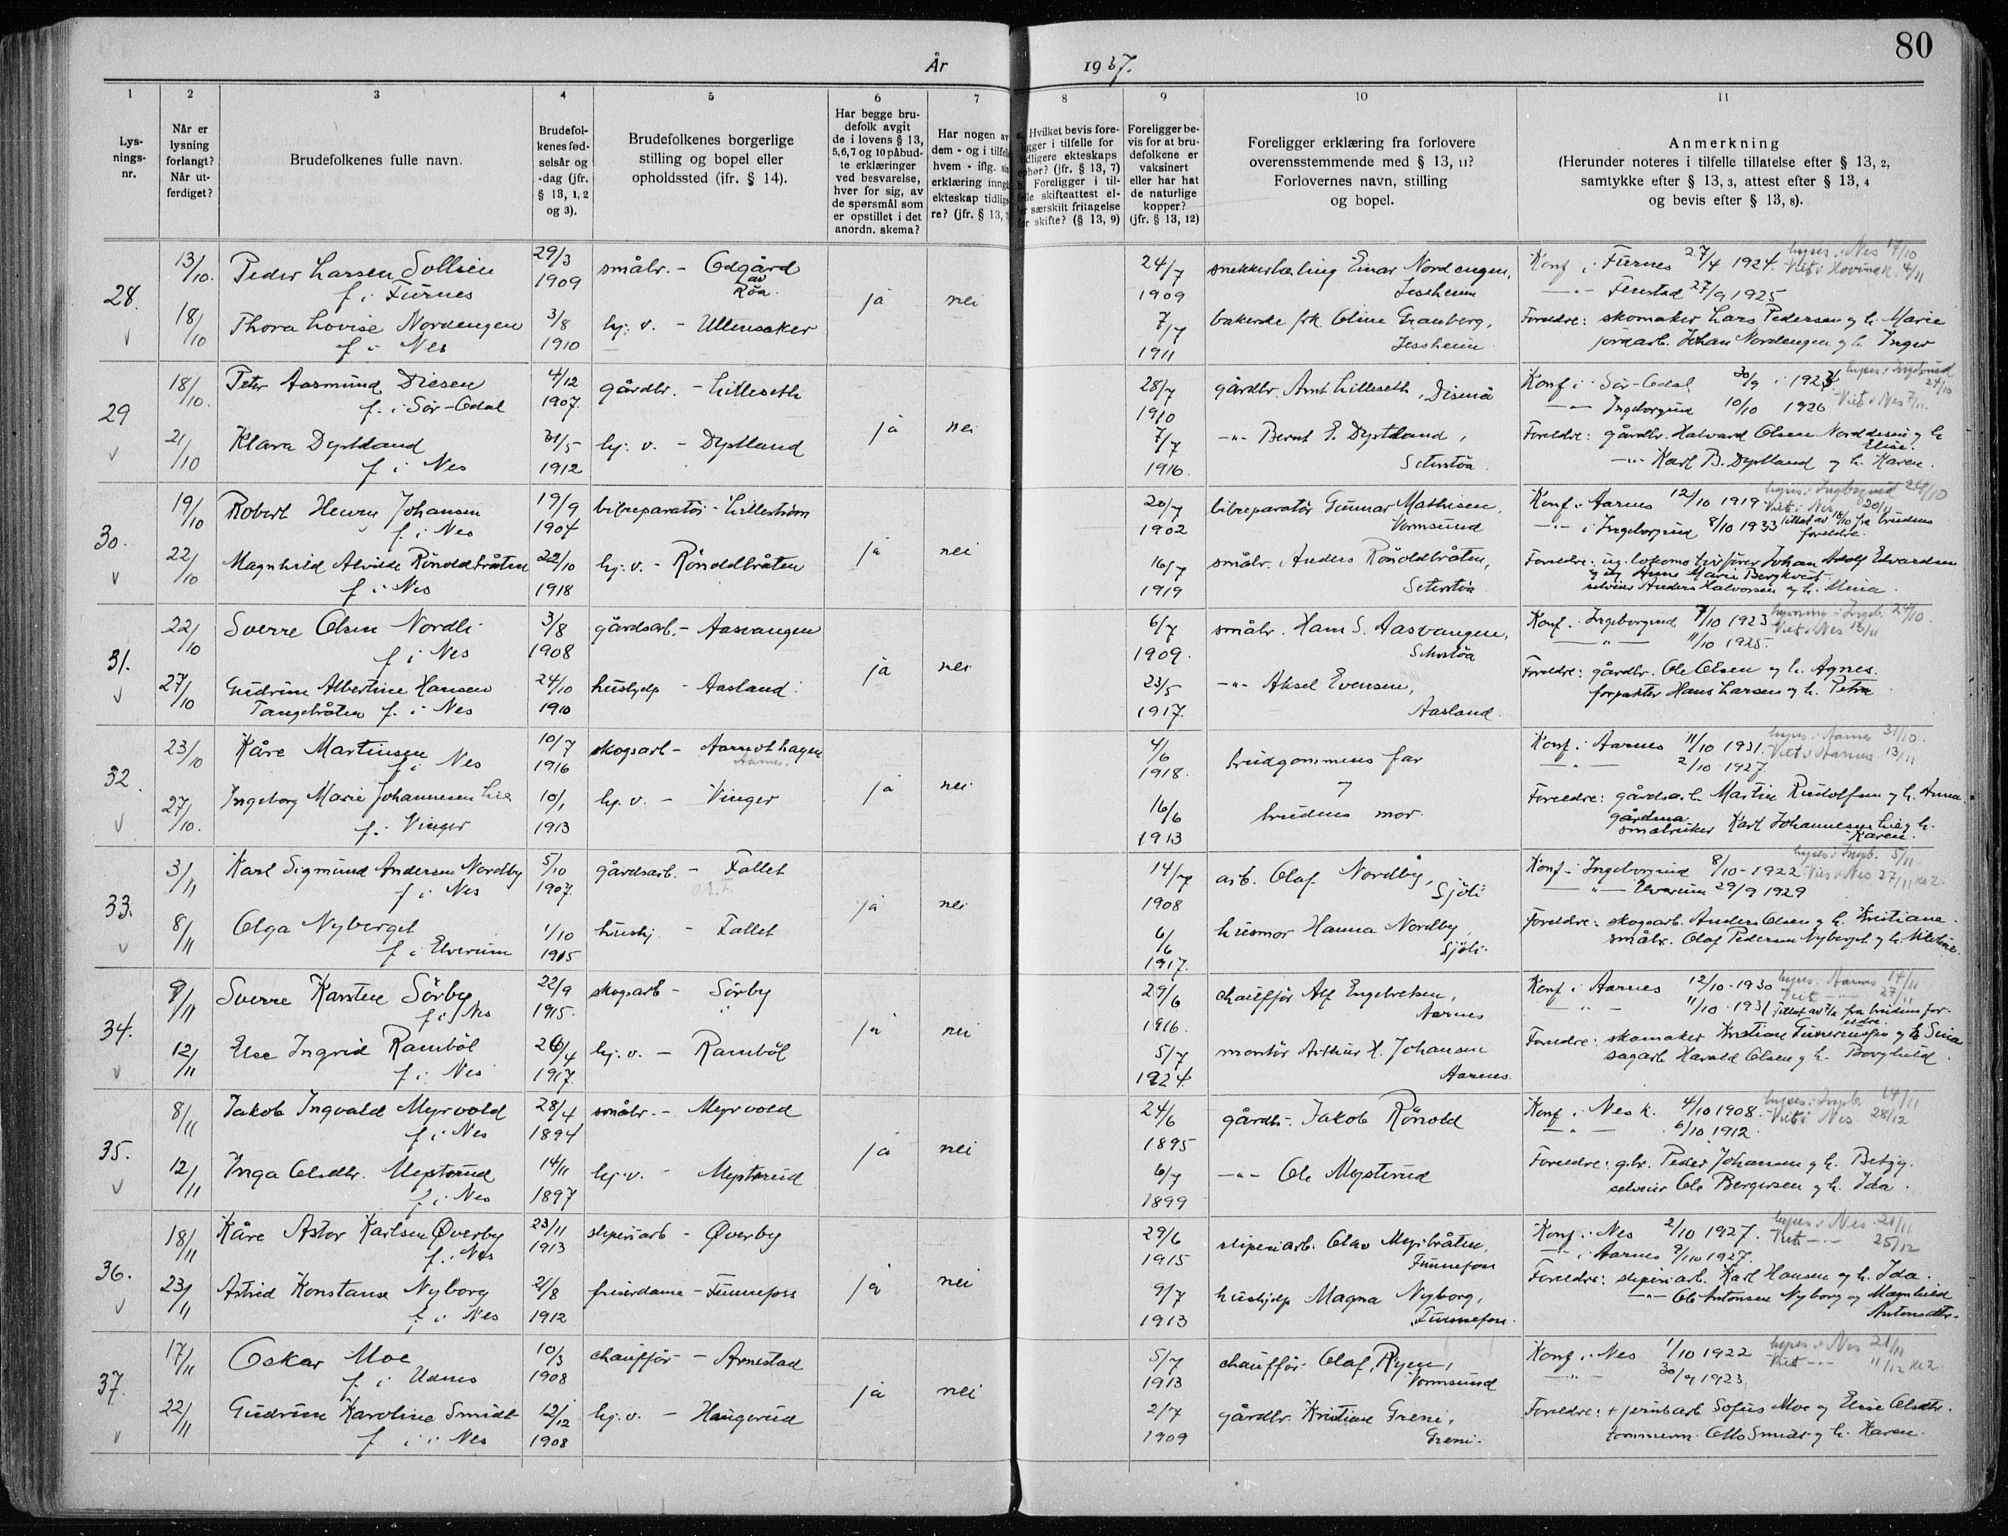 80
År 1937.
1 2 3 4 5 6 7 8 9 10 11
Lys-
nings-
nr.
Når er
lysning
forlangt?
Når ut-
ferdiget?
Brudefolkenes fulle navn.
Brudefol-
kenes fød-
selsår og
-dag (jfr.
§ 13, 1, 2
og 3).
Brudefolkenes borgerlige
stilling og bopel eller
opholdssted (ifr. § 14).
Har begge bru-
defolk avgit
de i lovens § 13,
5,6,7 og 10 påbud-
te erklæringer
ved besvarelse,
hver for sig, av
de spørsmål som
er opstillet i det
anordn. skema?
Har nogen av
dem - og i tilfelle
hvem - iflg. sin
erklæring inngå
ekteskap tidlige-
re? (jfr. § 13, 7
a. Hvilket bevis fore-
ligger i tilfelle for
tidligere ekteskaps
ophør? (jfr. § 13, 7)
b. Foreligger i til-
felle skifteattest el-
ler særskilt fritagelse
for skifte? (§ 13, 9)
Foreligger be-
vis for at bru-
defolkene er
vaksinert
eller har hat
de naturlige
kopper?
(jfr. § 13, 12)
Foreligger erklæring fra forlovere
overensstemmende med § 13, 11?
Forlovernes navn, stilling
og bopel.
Anmerkning
(Herunder noteres i tilfelle tillatelse efter § 13, 2,
samtykke efter § 13, 3, attest efter § 13, 4
og bevis efter § 13, 8).
28. 13/10 Peder Larsen Sollien 29/3 smålr. - Odgård 24/7 Einar Nordengen, Konf i Furnes 27/4 1924. lyses i Nes 17/10
f. i Furnes 1909 av Röa ja nei 1909 Jessheim -"- Fenstad 27/9 1925 Viet i Hovind k. 6/11
18/10 Thora Lovise Nordengen 3/8 hj. v. - Ullensaker 7/7 bakerske frk. Oline Granberg, Foreldre: skomaker Lars Pedersen og h. Marie
f. i Nes 1910 1911 Jessheim jordarb. Johan Nordengen og h. Inger
29 18/10 Peter Aasmund Diesen 4/12 gårdbr. - Lilleseth 28/7 gårdbr. Arnt Lilleseth, Disenå Konf i Sör-Odal 30/9 i 1923 24/10
f. i Sör-Odal 1907. ja nei 1910 -"- Ingeborgrud 10/10 1926 Viet i Nes 7/11
21/10 Klara Dystland 31/5 hj. v. - Dystland 7/7 -"- Bernt E. Dystland, Foreldre: gårdbr. Halvard Olsen og h. Elise.
f. i Nes 1912 1916 Seterstöa. -"- Karl B. Dystland og h. Karen.
30. 19/10 Robert Henry Johansen 17/9 bilreparatör - Lilleström 20/7 bilreparatör Gunnar Mathisen, Konf i Aarnes 12/10 1919 lyses i Ingeborgrud 24/10
f. i Nes 1904 ja nei 1902 Vormsund -"- i Ingeborgrud 8/10 1933 Viet i Nes 20/11 tillat av 18/10 fra brudens foreldre.
22/10 Magnhild Alvilde Rönoldbråten 22/10 hj. v. - Rönoldbråten 16/7 smålr. Anders Rönoldbråten, Foreldre: Johan Adolf Edvardsen
og Anne Marie Bergkvist
f. i Nes 1918 1919 Seterstöa selveier Anders Halvorsen og h. Mina.
31. 22/10 Sverre Olsen Nordli 3/8 gårdsarb. - Aasvangen 6/7 smålr. Hans S. Aasvangen, Konf. i Ingeborgrud 7/10 1923 24/10.
f i Nes 1908 ja nei 1909. Seterstöa -"- 11/10 1925. Viet i Nes
27/10 Gudrun Albertine Hansen 24/10 hushjelp - Aasland. 23/5 -"- Aksel Evensen, Foreldre: gårdbr. Ole Olsen og h. Agnes.
Tangebråten f. i Nes 1910 1917. Aasland. forpakter Hans Larsen og h. Petra
32 23/10 Kåre Martinsen 10/7 skogsarb - Aarnes 4/6 brudgommens far Konf i Aarnes 11/10 1931. lyses i Aarnes 31/10.
f. i Nes 1916 ja nei 1918. og -"- 2/10 1927 Viet i Aarnes 13/11
27/10. Ingeborg Marie Johannesen Lie 10/1 hj. v. - Vinger 16/6 brudens mor. Foreldre: gårdsarb. Martin Rudolfsen og h. Anna.
f. i Vinger 1913 1913 småbruker Karl Johannesen Lie og h. Karen.
33. 3/11 Karl Sigmund Andersen Nordby 5/10 gårdsarb. - Fallet 14/7 arb. Olaf Nordby, Konf. i Ingeborgrud 8/10-1922 lyses i Ingeb. 5/11
f i Nes 1907. ja nei 1908 Sjöli -"- Elverum 29/9 1929 Vies i Nes 27/11
8/11 Olga Nyberget 1/10 hushj. - Fallet 6/6 husmor Hanna Nordby, Foreldre: skogsarb. Anders Olsen og h. Kristiane.
f i Elverum 1915 1917. Sjöli. smålr. Olaf Pedersen Nyberget og h.
34. 9/11 Sverre Karsten Sörby 22/9 skogsarb - Sörby 29/6 chauffør Alf Engebretsen, Konf i Aarnes 12/10-1930 lyses i Aarnes 14/11
f i Nes 1915. ja nei 1916. Aarnes -"- 11/10-1931 Viet -"- 27/11 tillat av fra brudens foreldre.
12/11 Else Ingrid Ramböl 26/4 hj. v. - Ramböl 5/7 montör Arthur H. Johansen Foreldre: skomaker Kristian og h. Sina
f. i Nes 1917. 1924. Aarnes. sagarb. Harald Olsen og h. Borghild.
35. 8/11 Jakob Ingvald Myrvold 28/4 smålr. - Myrvold 24/6 gårdb. - Jakob Rönold Konf i Nes k. 4/10 1908. lyses i Ingeb. 14/11
f i Nes 1894 ja nei 1895 -"- 6/10 1912. Viet i Nes 28/12
12/11 Inga Olsdtr. Mysterud 14/11 hj. v. - Mysterud 6/7 -"- Ole Mysterud Foreldre: g.br. Peder Johansen og h. Betzy.
f. i Nes 1897 1899 selveier Ole Bergersen og h. Ida.
36. 18/11 Kåre Astor Karlsen Øverby 23/11 sliperiarb - Øverby 29/6 sliperiarb. Olav Mysibråten, Konf. i Nes 2/10 1927. lyses i Nes 21/11
f. i Nes 1913 ja nei 1915 Funnefoss -"- i Aarnes 9/10 1927. Viet -"- 25/12
23/11 Astrid Konstanse Nyborg 2/8 friserdame - Funnefoss 9/7 hushjelp Magna Nyborg, Foreldre: sliperiarb. Karl Hansen og h. Ida.
f. i Nes 1912 1913 Funnefoss. -"- Ole Antonsen Nyborg og Magnhild Antonsdtr.
37. 17/11 Oskar Moe 10/3 chauffør - Arnestad 5/7 chauffør. Olaf Ryen, Konf. i Nes 1/10 1922 lyses i Nes 21/11
f i Udnes 1908 ja nei 1913 Vormsund -"- 30/9 1923. Viet -"- 11/12
22/11 Gudrun Karoline Smidt 12/12 hj. v. - Haugerud 2/7 gårdbr. Kristian Greni, Foreldre: + Sofus Moe og Elise Olsdtr.
f. i Nes 1908 1909 Greni. tömmerm. Otto Smidt og h. Karen.